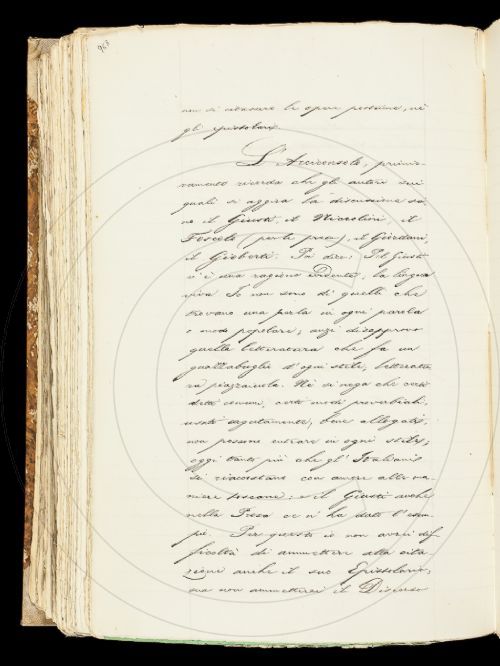 963
non si citassero le opere postume, nè
gli epistolari.
L'Arciconsolo, primie-
ramente ricorda che gli autori sui
quali si aggira la discussione so-
no il Giusti, il Niccolini, il
Foscolo (per le prose), il Giordani,
il Gioberti. Poi dice: Pel Giusti
v'è una ragione evidente, la lingua
viva. Io non sono di quelli che
trovano una perla in ogni parola
o modo popolare; anzi disapprovo
quella letteratura che fa un
guazzabuglio d'ogni stile, letteratu-
ra piazzaiuola. Nè si nega che certi
detti comuni, certi modi proverbiali,
usati argutamente, bene allegati,
non possano entrare in ogni stile;
oggi tanto più che gl'Italiani
si riaccostano con amore alle ma-
niere toscane: e il Giusti anche
nella Prosa ce n'ha dato l'esem-
pio. Per questo io non avrei dif-
ficoltà di ammettere alla cita-
zione anche il suo Epistolario,
ma non ammetterei il Discorso